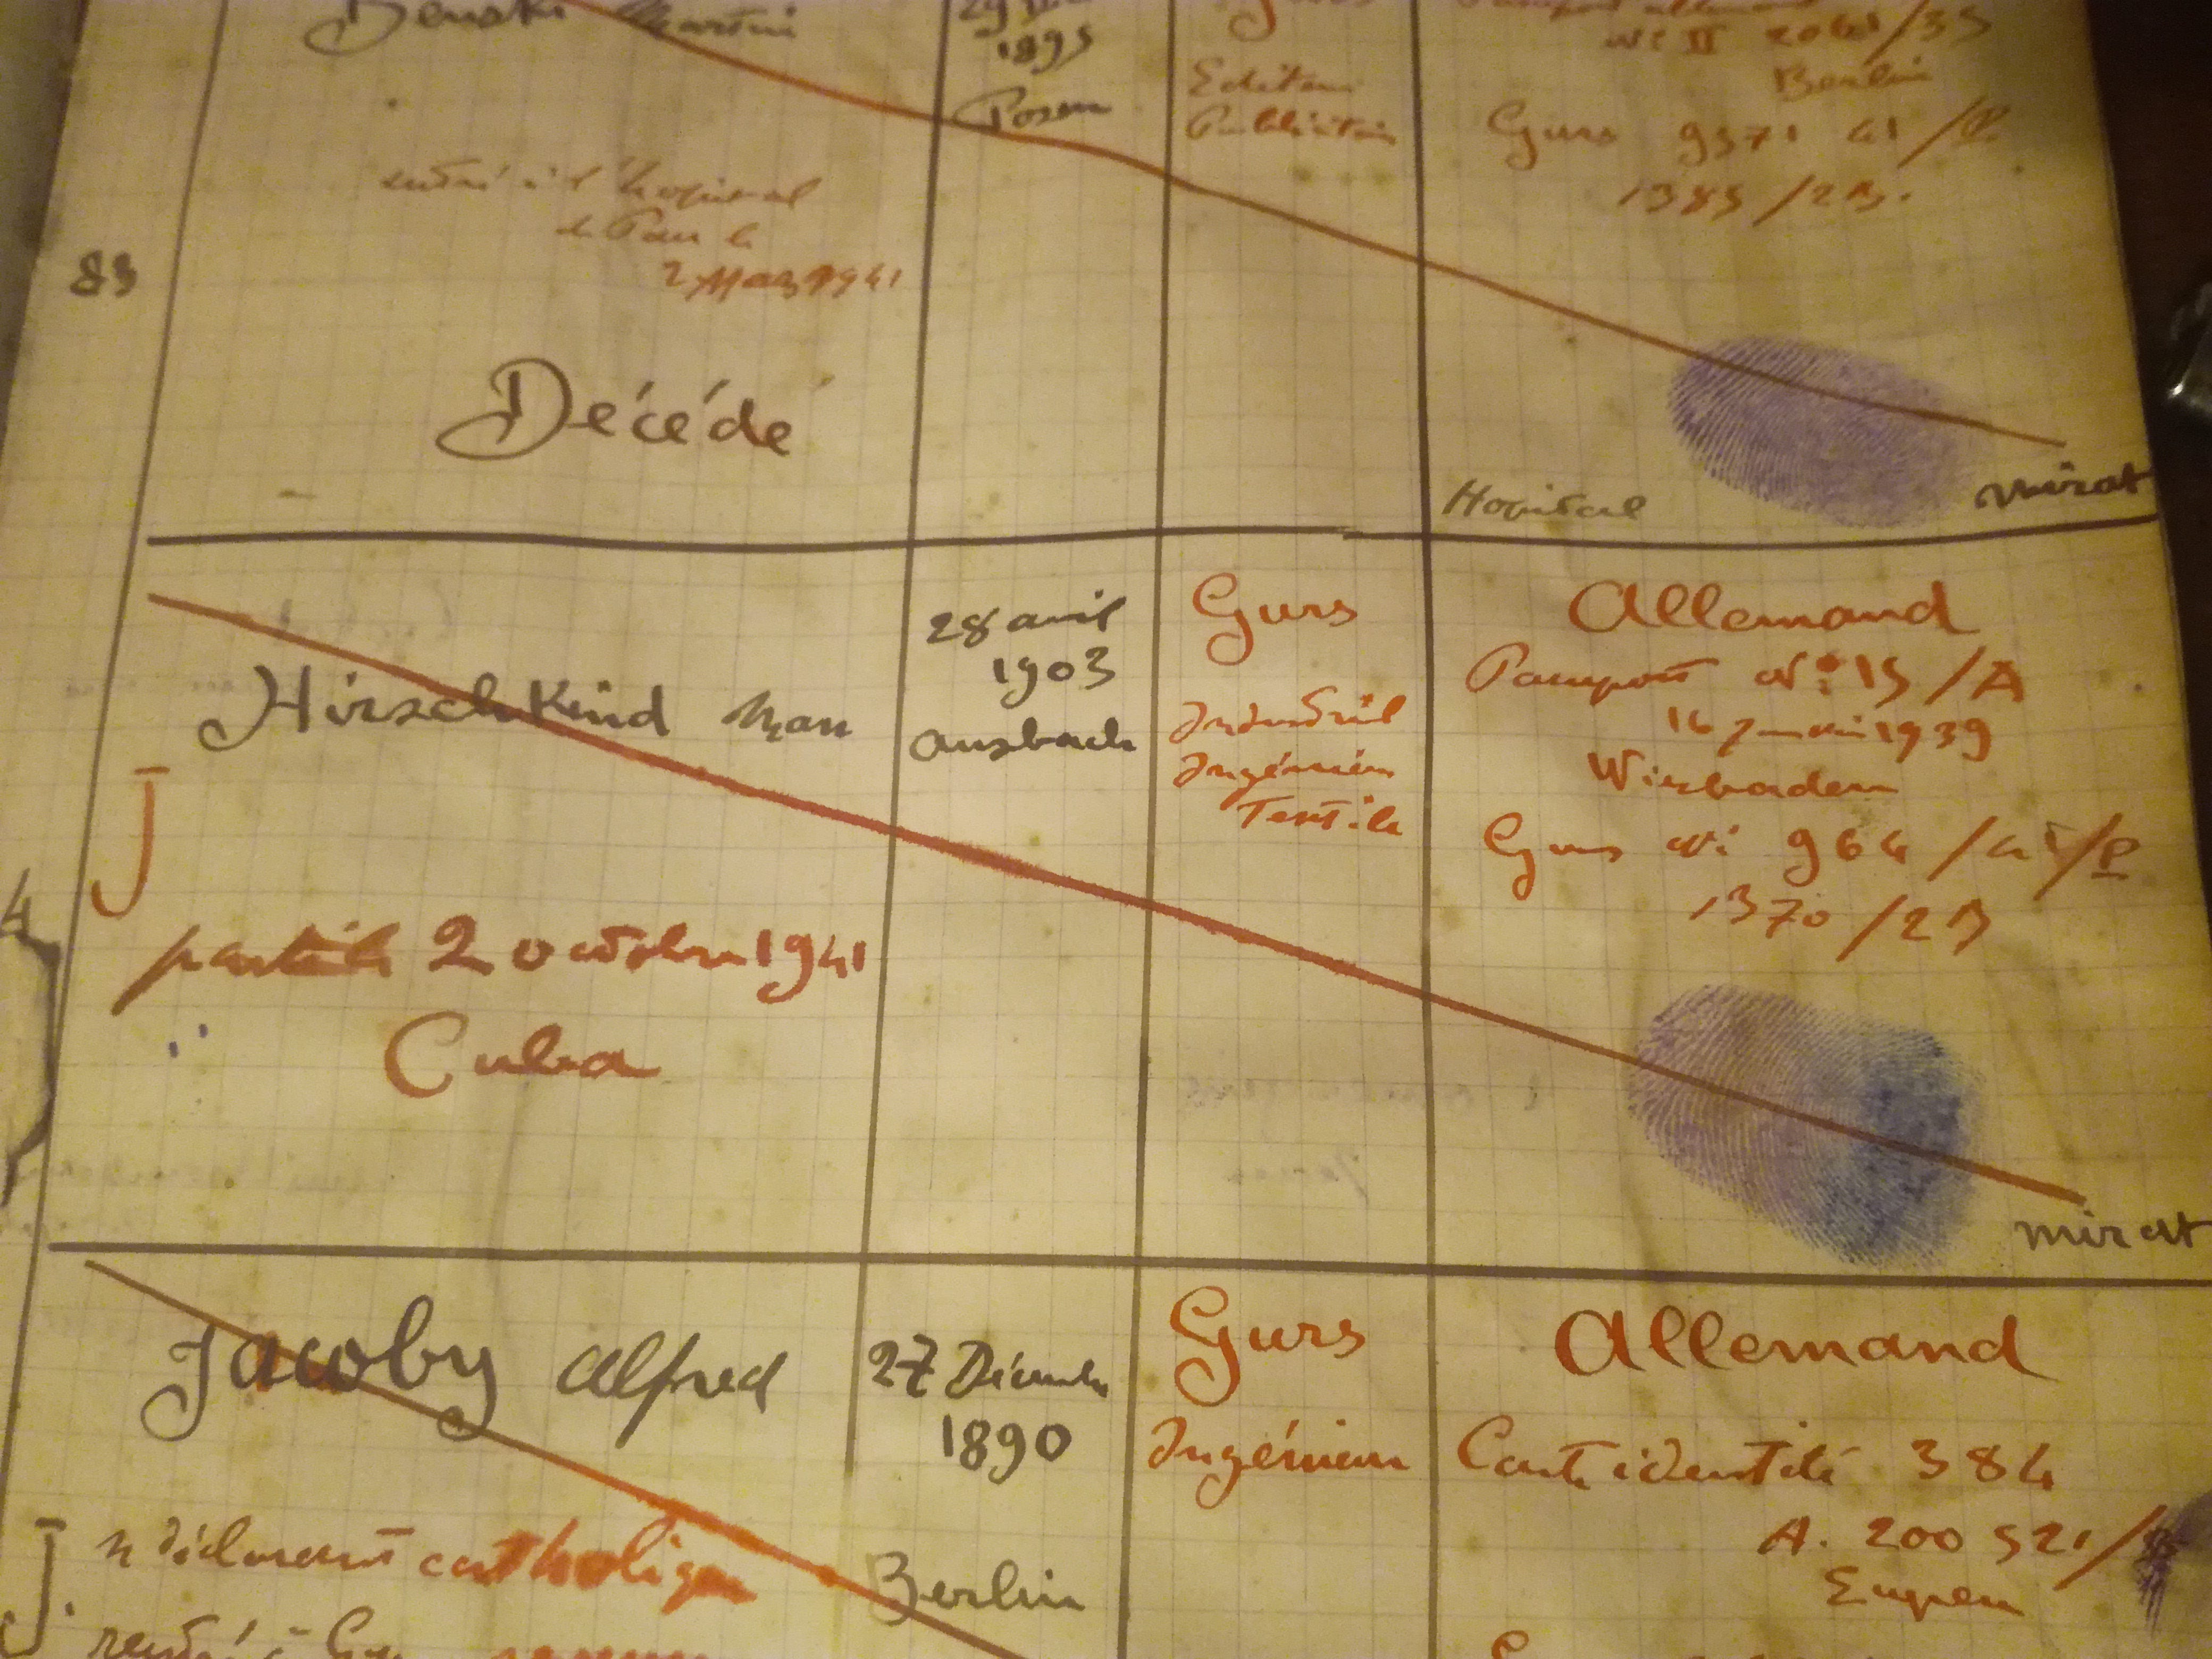 Martin
1895
Posen
Nº II
/35
Berlin
Editeur
Publicitaire
Gurs 9371 41/P.
1385/2B.
entré à l'hopital
de Pau le
2 Mars 1941
83
Décédé
Hopital
mirat
Hirschkind Max
28 avril
1903
ansbach
Gurs
Industriel
Ingénieur
Textile
Allemand
Passport Nº 15/A
16 Janvier 1939
Wiesbaden
Gurs Nº 964/41/P
1370/2B
J
parti le 2 octobre 1941
Cuba
mirat
4
Jacoby alfred
27 Décembre
1890
Berlin
Gurs
Ingénieur
Allemand
Carte identité 384
A. 200 521/
Eupen
J.
se déclarant catholique